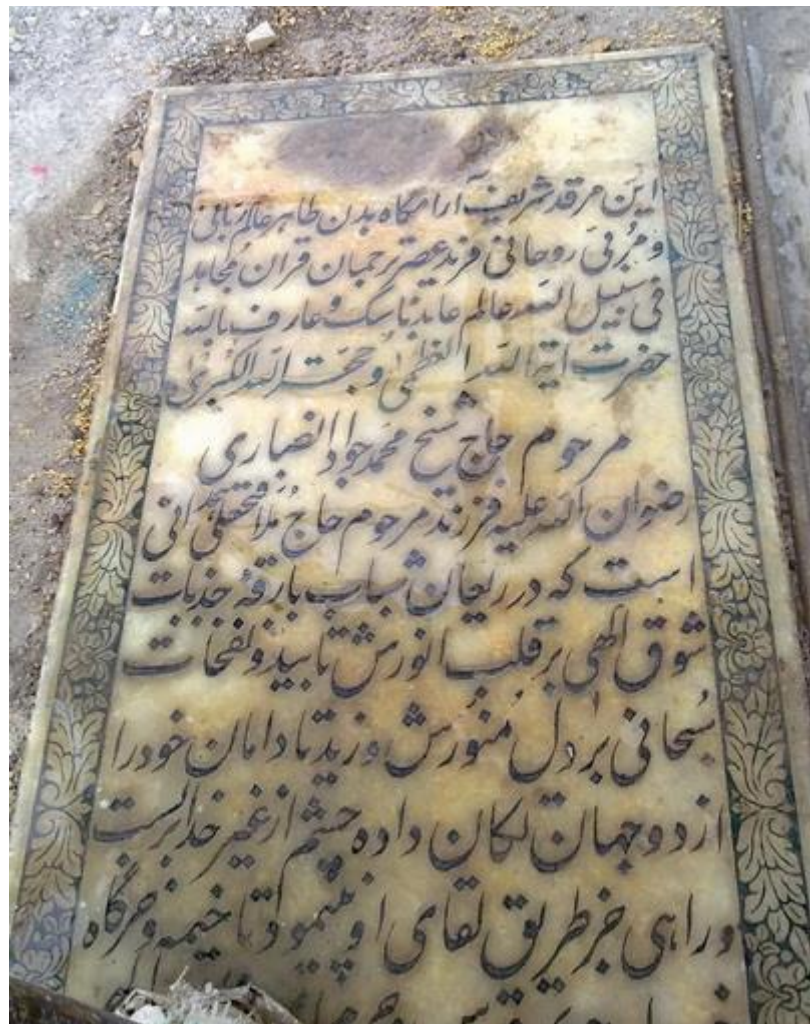 این مرقد شریف آرامگاه بدن طاهر عالم ربانی
و مربی روحانی فرید عصر ترجمان قرآن مجاهد
فی سبیل الله عالم عابد ناسک و عارف بالله
حضرت آیة الله العظمی و حجة الله الکبری
مرحوم حاج شیخ محمد جواد انصاری
رضوان الله علیه فرزند مرحوم حاج ملا فتحعلی همدانی
است که در ریعان شباب بارقهٔ جذبات
شوق الهی بر قلب انورش تابید و نفخات
سُبحانی بر دل منورش وزید تا دامان خود را
از دو جهان تکان داده چشم از غیر خدا بربست
و راهی جز طریق لقای او نپیمود تا خیمه و خرگاه